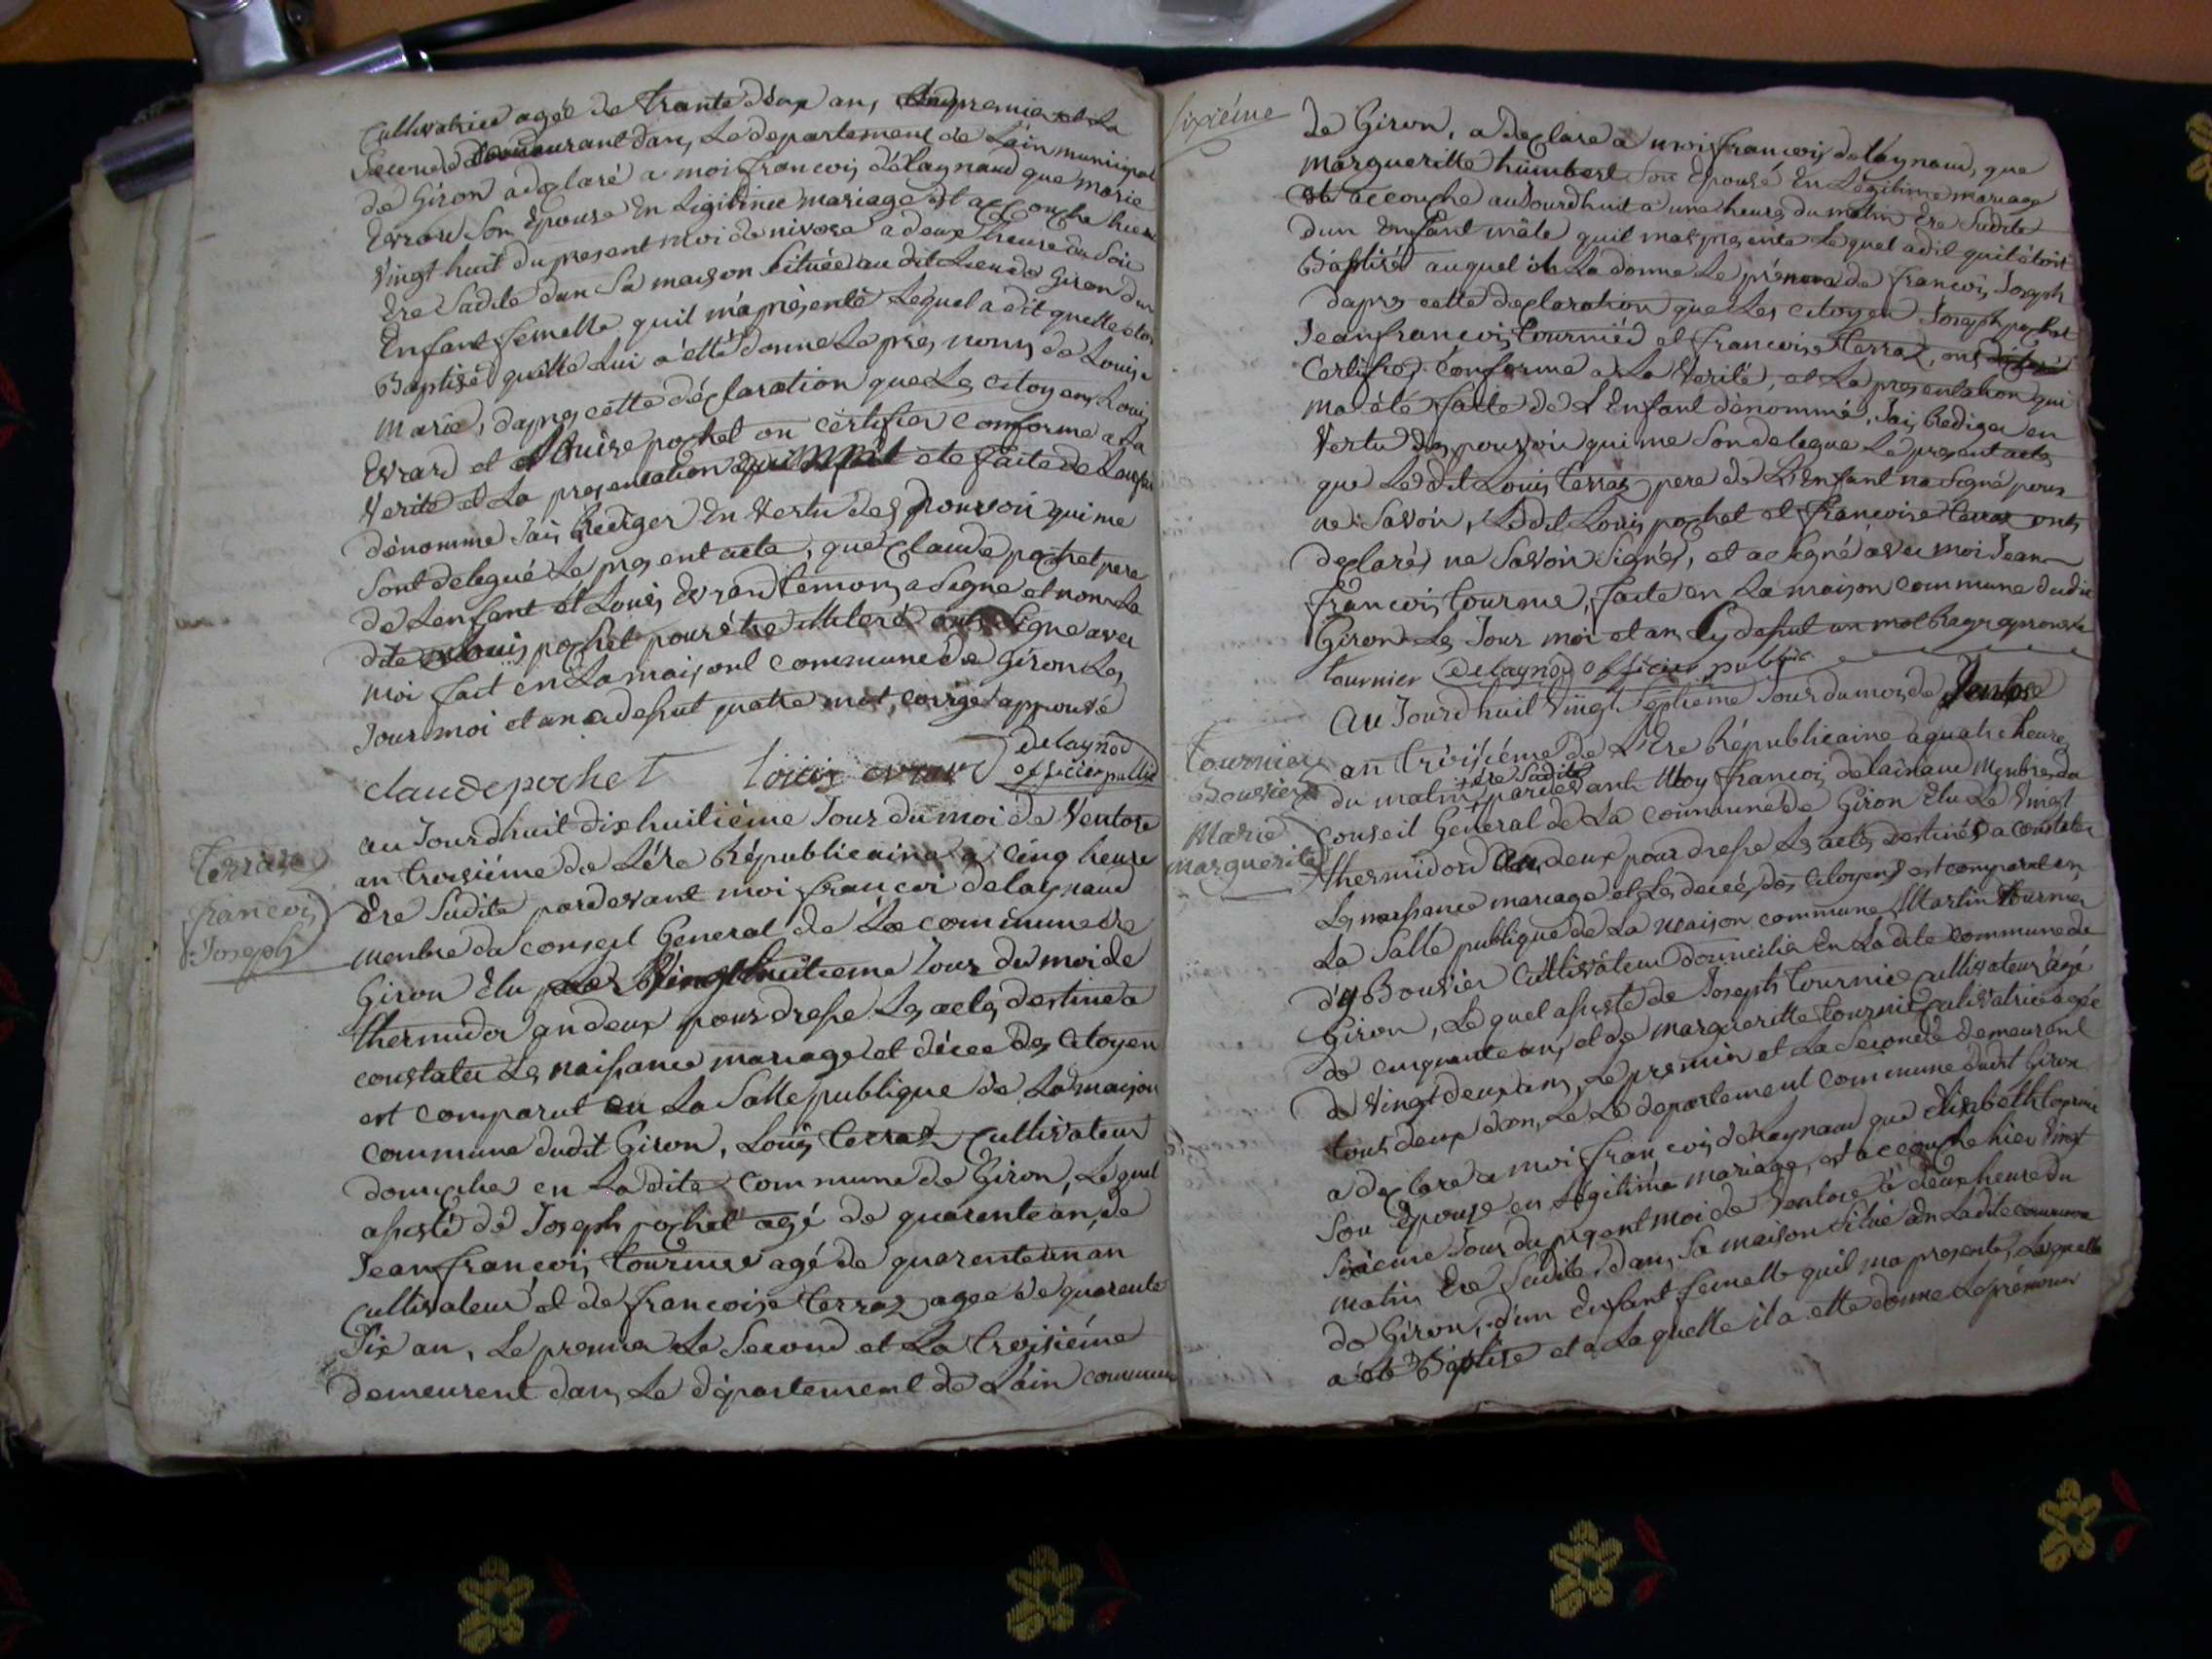 Cultivatrice agée de trante deux ans, premier et la
Seconde demeurant dans, Le departement de Lain municipal
de Giron a declaré a moi francois délaynaud que marie
Evrard Son Epouse En Legitime mariage est accouche hier
Vingt huit du present moi de nivose a deux heure du Soir
Ere Sudite dan Sa maison Située au dit Lieu de Giron dun
Enfant femelle quil m'a présenté Lequel a dit quelle etoit
Baptisé quelle Lui a etté donne Le pres noms de Louise
Marie, dapres cette déclaration que Les citoyens Louis
Evrard et Louise pochet on certifier comforme a La
Verité et La presentation qui m'a eté faite de Lenfan
dénomme Jais Rediger En Vertu des pouvoir qui me
Sont delegué Le present acte, que Claude pochet pere
de Lenfant et Louis Evrard temoins a Signe et non La
dite Louise pochet pour être illiteré ont Signe avec
moi fait en La maisont commune de Giron Les
Jour moi et an a desut quatre mot, corrigé approuvé
claude pochet Louis evrard delaynod
officier public
Terraz
francois
Joseph
au Jourdhuit dix huitiéme Jour du moi de Ventose
an troisiéme de Lére Républicaine a Cinq heure
Ere Sudite pardevant moi francoi delaynaud
membre du conseil General de La commune de
Giron Elu Le Vingt huitieme Jour du moi de
thermidor an deux pour dresse Les actes destine a
constater Les naissance mariage et décee des Citoyen
est comparut en La Salle publique de La maison
commune dudit Giron, Louis terraz Cultivateur
domicilie en Ladite Commune de Giron, Lequel
assisté dé Joseph pochet agé de quarente an, de
Jean francois, tournier agé de quarente un an
Cultivateur et de francoise terraz agee de quarente
Six an, Le premier Le Second et La troisiéme
demeurent dans Le département de Lain commune
Sixiéme
de Giron, a declare a moi francois delaynaud, que
marguerite humbert Son Epouse En Legitime mariage
est accouche auJourdhuit a une heure du matin Ere Sudite
dun Enfant mâle quil mat presente Lequel a dit quil étoit
Baptisé auquel on La donne Le prénom de francois Joseph
dapres cette declaration que Les citoyen Joseph pochet
Jean francois tournier et francoise terraz, ont
Certifier conforme a La Verité, et La presentation qui
ma été faite de L'Enfant dénommé, Jais Rediger en
Vertu des pouvoir qui me Son delegue Le present acte
que Ledit Louis terraz pere de L'Enfant na Signé pour
ne Savoir, Ledit Louis pochet et francoise terraz onts
declaré ne Savoir Signé, et a Signé avec moi Jean
francois tournier, faite en La maison commune dudit
Giron Les Jour moi et an Cy desut un mot Raye approuvé
tournier delaynod officier public
Tournier
Bouvier
Marie
marguerite
au Jourd huit Vingt Septieme Jour du mois de Ventose
an troisiéme de L'Ere Républicaine a quatre heure
du matin + ere Sudite pardevant Moy francois delainaud Membre du
Conseil General de La commune de Giron Elu Le Vingt
thermidor an deux pour dresse Les actes destinés a constater
Les naissance mariage et Les decée des Citoyens est comparut en
La Salle publique de La maison commune Martin tournier
dy Bouvier Cultivateur domicilié En La dite commune de
Giron, Le quel assisté de Joseph tournier Cultivateur agé
de cinquante ans, et de marguerite tournier Cultivatrice agée
de Vingt deux ans, Le premier et La Seconde demeurent
tous deux dans, Le Le departement commune dudit Giron
a declare a moi francois delaynaud que Elisabeth
Son Epouse en Légitime mariage, est accouche hier Vingt
Sixieme Jour du present moi de Ventose a deux heure du
matin Ere Sudite, dans Sa maison Situé dan Ladite commune
de Giron, dun Enfant femelle quil ma presente, Laquelle
a été Baptise et a Laquelle il a etté donne Le prénom